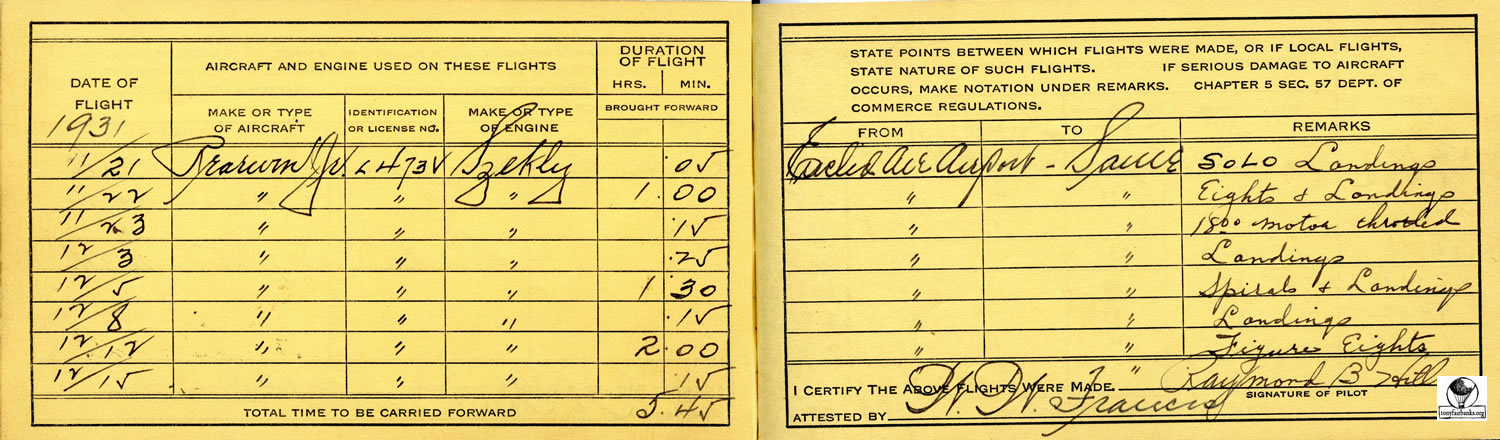 DATE OF FLIGHT
1931
AIRCRAFT AND ENGINE USED ON THESE FLIGHTS
DURATION OF FLIGHT
HRS. MIN.
MAKE OR TYPE OF AIRCRAFT
IDENTIFICATION OR LICENSE NO.
MAKE OR TYPE OF ENGINE
BROUGHT FORWARD
11/21 Rearwin Jr. Szekly .05
11/22 " " " 1.00
11/23 " " " .15
12/3 " " " .25
12/5 " " " 1 30
12/8 " " " .15
12/12 " " " 2.00
12/15 " " " .15
TOTAL TIME TO BE CARRIED FORWARD 5.45
STATE POINTS BETWEEN WHICH FLIGHTS WERE MADE, OR IF LOCAL FLIGHTS,
STATE NATURE OF SUCH FLIGHTS. IF SERIOUS DAMAGE TO AIRCRAFT
OCCURS, MAKE NOTATION UNDER REMARKS. CHAPTER 5 SEC. 57 DEPT. OF
COMMERCE REGULATIONS.
FROM TO REMARKS
Euclid Ave Airport - Same SOLO Landings
" " Eights & Landings
" " 1800 motor throtled
" " Landings
" " Spirals & Landings
" " Landings
" " Figure Eights
I CERTIFY THE ABOVE FLIGHTS WERE MADE. " Raymond B Hill
SIGNATURE OF PILOT
ATTESTED BY W. W. Francis
tonyfairbanks.org